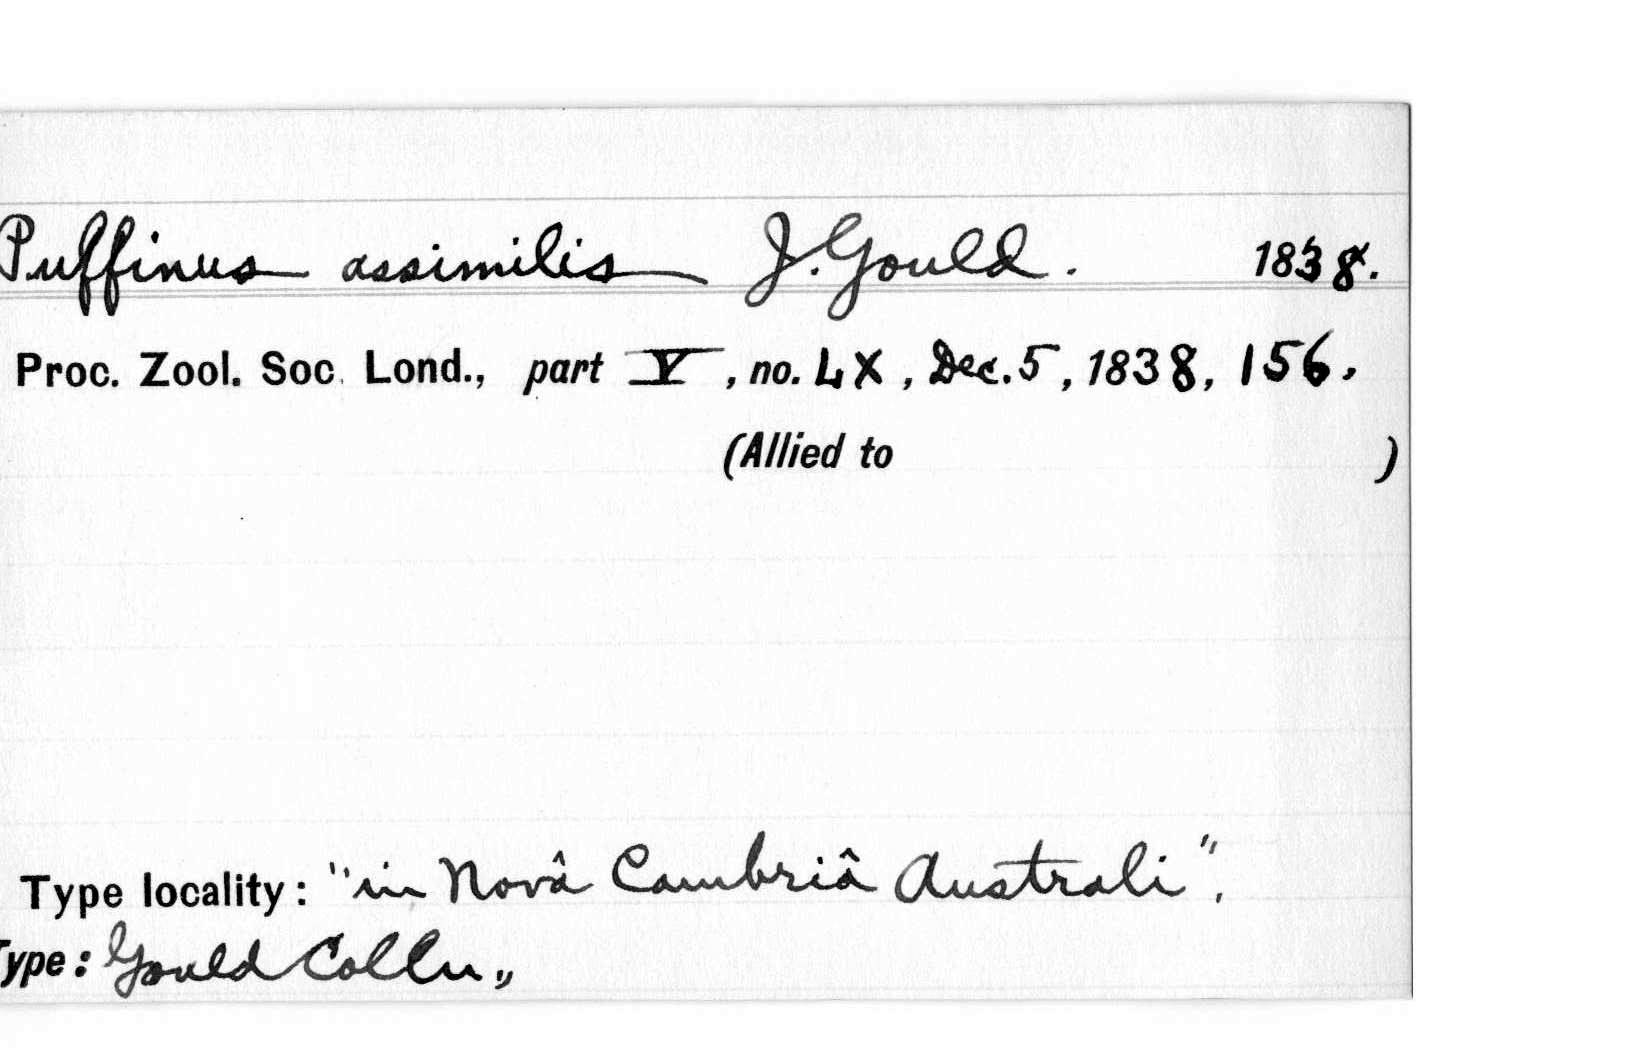 Puffinus assimilis J. Gould. 1838.
Proc. Zool. Soc. Lond., part V, no. LX, Dec. 5, 1838, 156.
(Allied to )
Type locality: "in Novâ Cambriâ Australi",
Type: Gould Colln.,